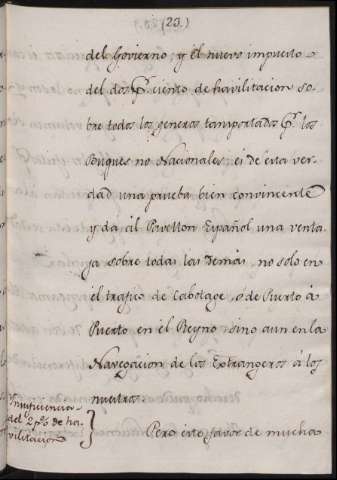 (23.)
del Govierno, y el nuevo impuesto
del dos pr. ciento de havilitacion so-
bre todos los generos transportados pr. los
Buques no Nacionales, es de esta ver-
dad una prueba bien convincente
y da al Pavellon Español una venta
ja sobre todas las demás, no solo en
el trafico de Cabotage, o de Puerto à
Puerto en el Reyno, sino aun en la
Navegacion de los Extrangeros à los
nuestros.
Insuficiencia
del 2 p% de ha-
vilitacion
Pero este favor de mucha